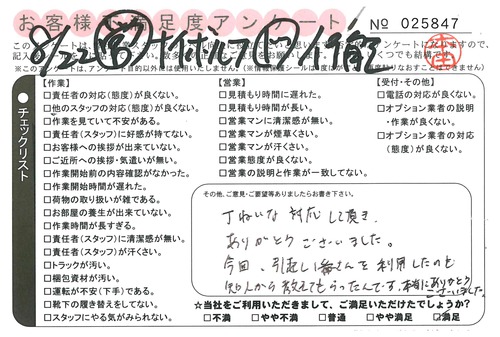 お客様ご満足度アンケート
№ 025847
8/22
チェックリスト
【作業】
□責任者の対応(態度)が良くない。
□他のスタッフの対応(態度)が良くない。
□作業を見ていて不安がある。
□責任者(スタッフ)に好感が持てない。
□お客様への挨拶が出来ていない。
□ご近所への挨拶・気遣いが無い。
□作業開始前の内容確認がなかった。
□作業開始時間が遅れた。
□荷物の取り扱いが雑である。
□お部屋の養生が出来ていない。
□作業時間が長すぎる。
□責任者(スタッフ)に清潔感が無い。
□責任者(スタッフ)が汗くさい。
□トラックが汚い。
□梱包資材が汚い。
□運転が不安(下手)である。
□靴下の履き替えをしてない。
□スタッフにやる気がみられない。
【営業】
□見積もり時間に遅れた。
□見積もり時間が長い。
□営業マンに清潔感が無い。
□営業マンが煙草くさい。
□営業マンが汗くさい。
□営業態度が良くない。
□営業の説明と作業が一致してない。
【受付・その他】
□電話の対応が良くない。
□オプション業者の説明
・作業が良くない。
□オプション業者の対応
(態度)が良くない。
その他、ご意見・ご要望等ありましたらお書き下さい。
丁ねいな対応して頂き、
ありがとうございました。
今回、引越し
さんを利用したのも
知人から教えてもらったんです。本当にありがとう
ございました。
☆当社をご利用いただきまして、ご満足いただけたでしょうか?
□不満 □やや不満 □普通 □やや満足 □満足